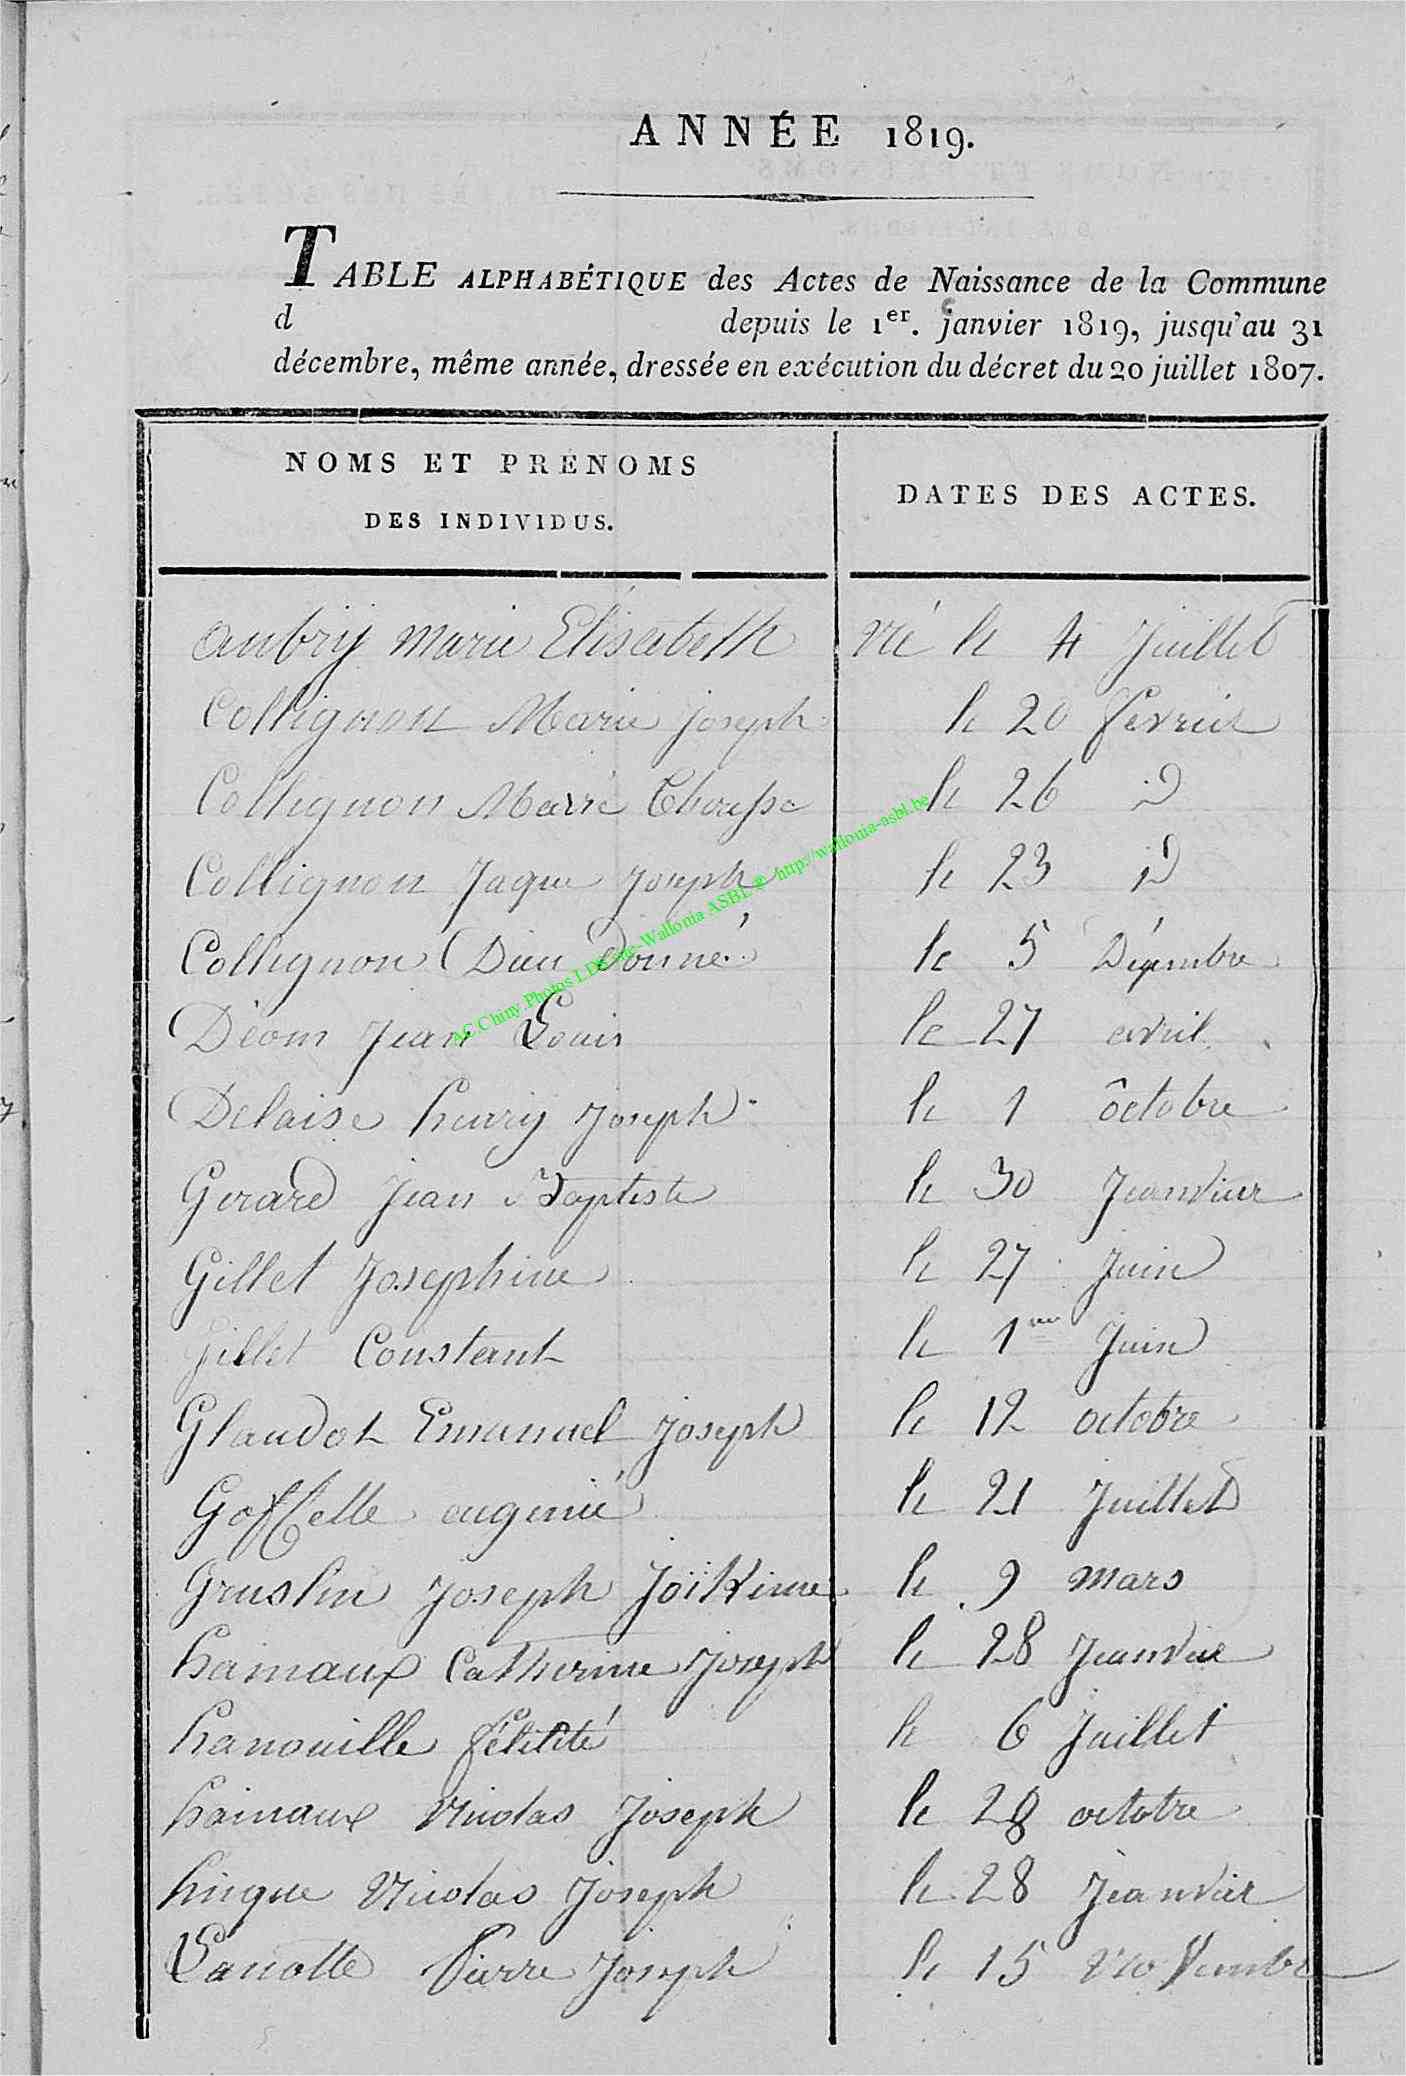 ANNÉE 1819.
TABLE ALPHABÉTIQUE des Actes de Naissance de la Commune
d depuis le 1er. janvier 1819, jusqu'au 31
décembre, même année, dressée en exécution du décret du 20 juillet 1807.
NOMS ET PRÉNOMS
DES INDIVIDUS.
DATES DES ACTES.
aubrij marie Elisabeth né le 4 Juillet
Collignon Marie joseph le 20 fevrier
Collignon Marie le 26 D
Collignon Jaque Joseph le 23 D
Collignon Dieu Donné le 5 Décembre
Déom Jean Louis le 27 avril
Delaise henrij Joseph le 1 ôctobre
Gerard Jean Baptiste le 30 Jeanvier
Gillet Josephine le 27 Juin
Gillet Constant le 1er Juin
Glaudot Emanuel Joseph le 12 octobre
Goffette eugenié le 21 Juillet
Joseph le 9 mars
hainaux Catherine Joseph le 28 Jeanvier
hanouille félicité le 6 Juillet
hainaux Nicolas Joseph le 28 octobre
hinque Nicolas Joseph le 28 Jeanvier
Lanotte Pierre Joseph le 15 Novembre
AC.Chiny.Photos LDS Sté-Wallonia ASBL © http://wallonia-asbl.be